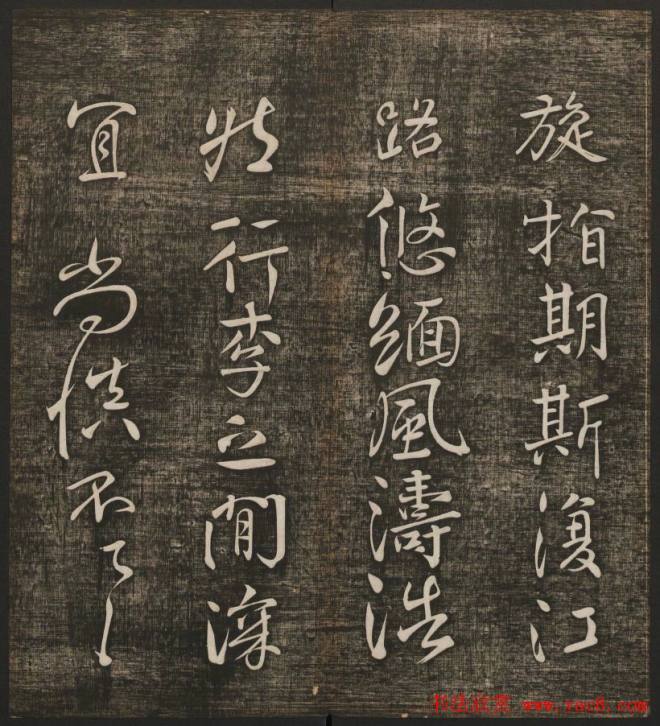 旋指期斯復江
路悠緬風濤浩
然行李之間深
宜尚慎不了
书法欣赏 www.yac8.com